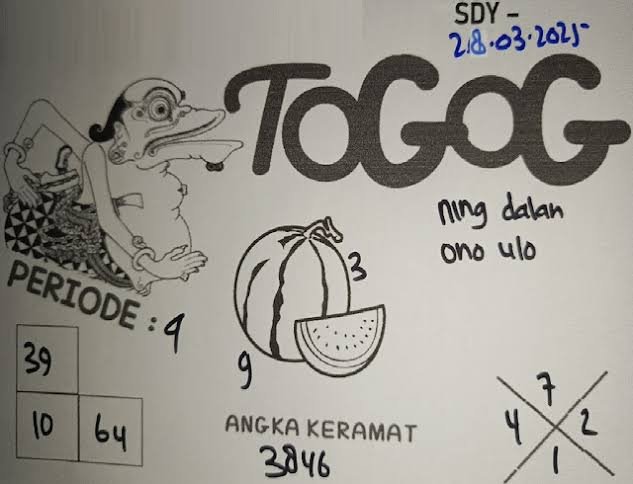 SDY -
28.03.2025
TOGOG
ning dalan
ono ulo
PERIODE : 9
3
9
39
10 64
ANGKA KERAMAT
3846
7
4 2
1